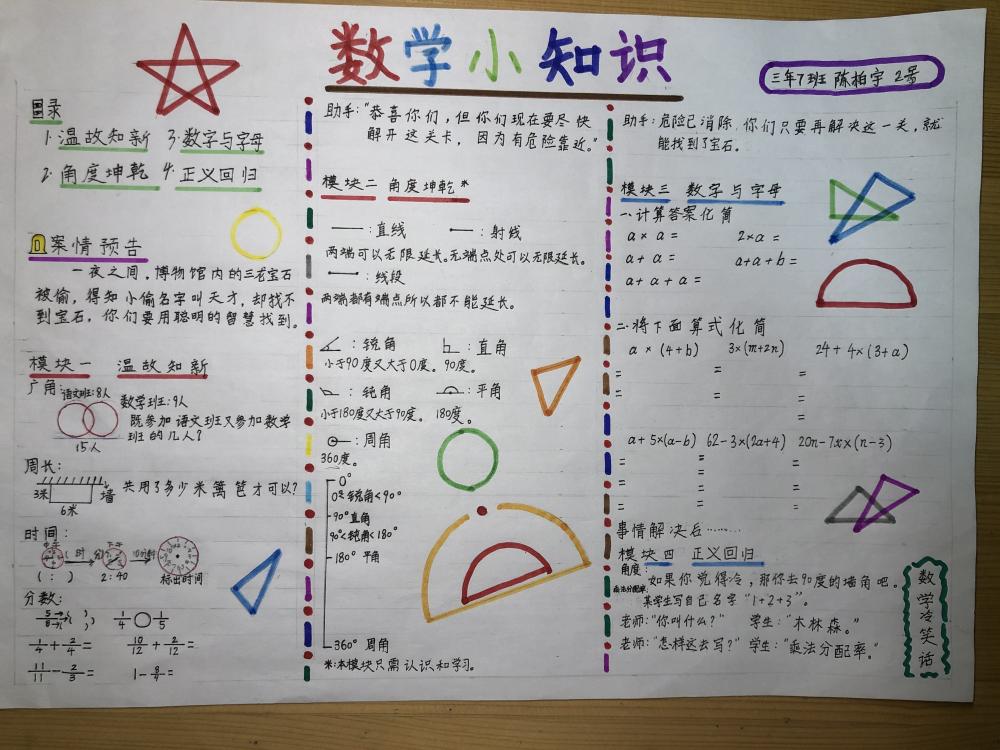 数学小知识
三年7班 陈柏宇 2号
目录
1.温故知新 3.数字与字母
2.角度坤乾 4.正义回归
案情预告
一夜之间，博物馆内的三龙宝石
被偷，得知小偷名字叫天才，却找不
到宝石，你们要用聪明的智慧找到。
模块一 温故知新
广角：
语文班：8人
数学班：9人
既参加语文班又参加数学
班的几人？
15人
周长：
3米
墙
6米
共用了多少米篱笆才可以？
时间：
( 时 分)
10分时
( : )
2:40
标出时间
分数：
1/4 ○ 1/5
1/4+2/4= 10/12+2/12=
11/11-2/3= 1-8/9=
助手："恭喜你们，但你们现在要尽快
解开这关卡，因为有危险靠近。"
模块二 角度坤乾*
：直线 ：射线
两端可以无限延长。无端点处可以无限延长。
：线段
两端都有端点所以都不能延长。
：锐角 ：直角
小于90度又大于0度。 90度。
：钝角 ：平角
小于180度又大于90度。 180度。
：周角
360度。
0°
0°<锐角<90°
90°直角
90°<钝角<180°
180° 平角
360° 周角
*：本模块只需认识和学习。
助手：危险已消除，你们只要再解决这一关，就
能找到了宝石。
模块三 数字与字母
一.计算答案化简
a×a= 2×a=
a+a= a+a+b=
a+a+a=
二.将下面算式化简
a×(4+b) 3×(m+2n) 24+4×(3+a)
= = =
= =
=
a+5×(a-b) 62-3×(2a+4) 20n-7x×(n-3)
= = =
= = =
= =
事情解决后……
模块四 正义回归
角度：
如果你觉得冷，那你去90度的墙角吧。
乘法分配率：
某学生写自己名字"1+2+3"。
老师："你叫什么？" 学生："木林森。"
老师："怎样这去写？" 学生："乘法分配率。"
数学冷笑话